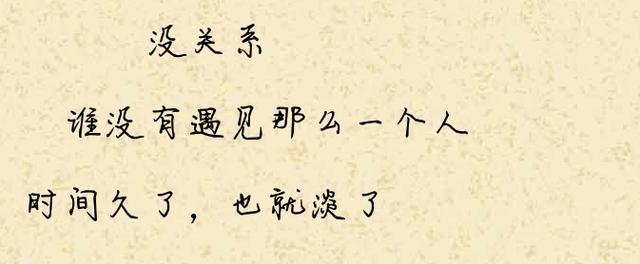 没关系
谁没有遇见那么一个人
时间久了，也就淡了